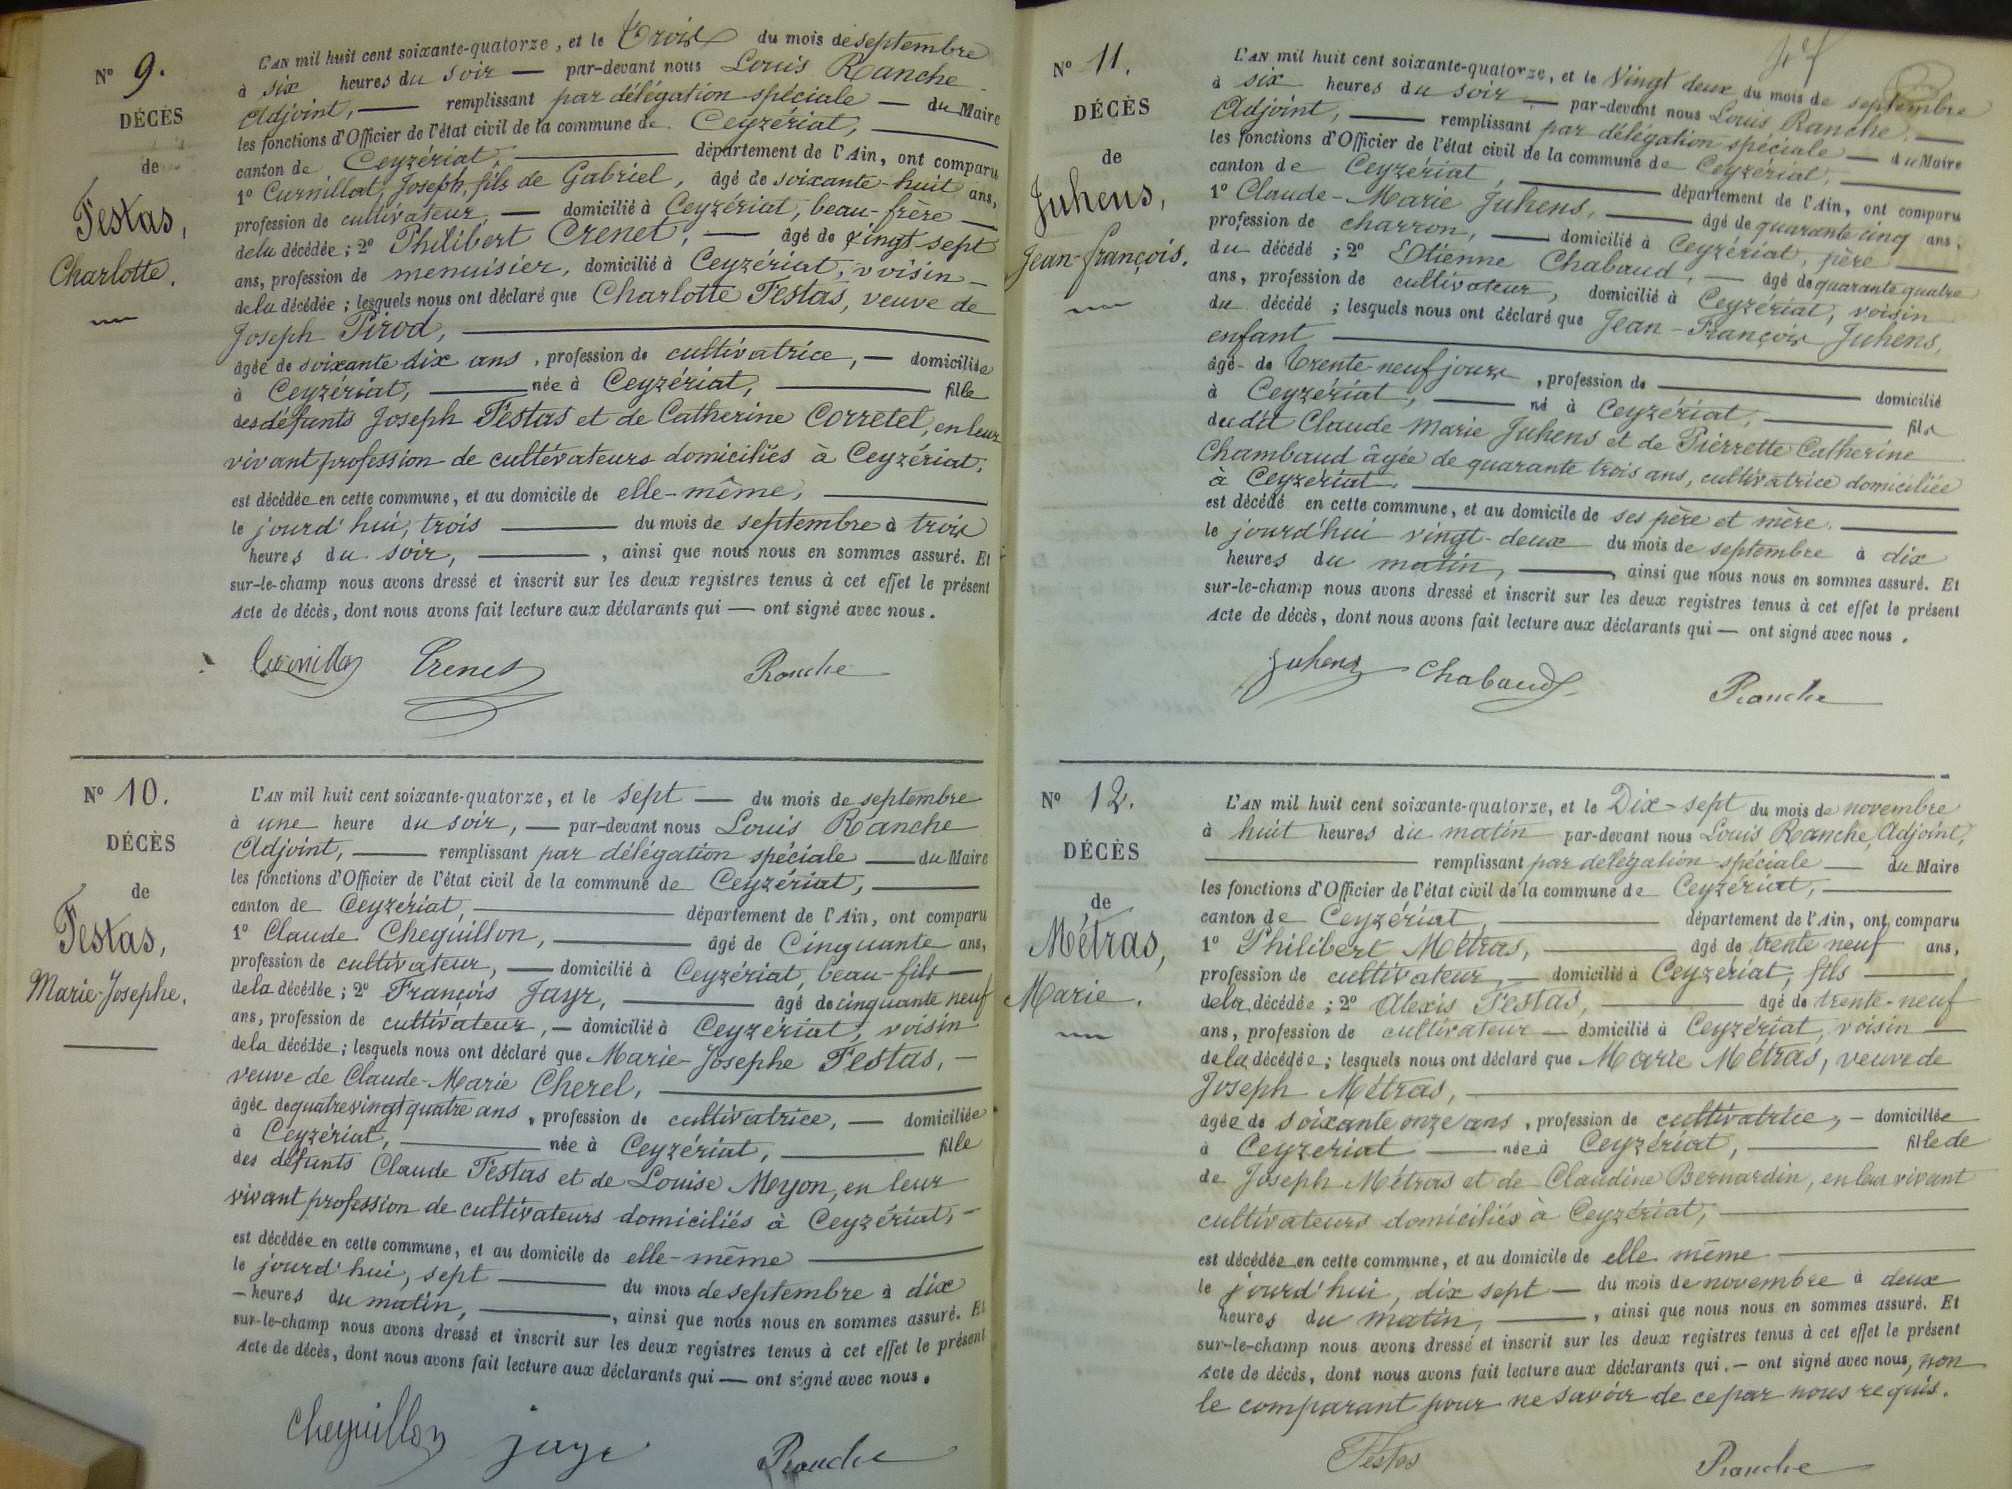 Nº 9.
DÉCÈS
de
Festas,
Charlotte.
L'AN mil huit cent soixante-quatorze, et le Trois du mois de septembre
à six heures du soir — par-devant nous Louis Ranche
Adjoint, — remplissant par délégation spéciale — du Maire
les fonctions d'Officier de l'état civil de la commune de Ceyzériat, —
canton de Ceyzériat, — département de l'Ain, ont comparu
1º Curnillat, Joseph, fils de Gabriel, âgé de soixante-huit ans,
profession de cultivateur, — domicilié à Ceyzériat, beau-frère —
de la décédée ; 2º Philibert Crenet, — âgé de vingt sept
ans, profession de menuisier, domicilié à Ceyzériat, voisin —
de la décédée ; lesquels nous ont déclaré que Charlotte Festas, veuve de
Joseph Pirod, —
âgée de soixante dix ans, profession de cultivatrice, — domiciliée
à Ceyzériat, — née à Ceyzériat, — fille
des défunts Joseph Festas et de Catherine Corretel, en leur
vivant profession de cultivateurs domiciliés à Ceyzériat,
est décédée en cette commune, et au domicile de elle-même, —
le jourd'hui, trois — du mois de septembre à trois
heures du soir, — , ainsi que nous nous en sommes assuré. Et
sur-le-champ nous avons dressé et inscrit sur les deux registres tenus à cet effet le présent
Acte de décès, dont nous avons fait lecture aux déclarants qui — ont signé avec nous.
Crenet Ranche
Nº 10.
DÉCÈS
de
Festas,
Marie-Josephe.
L'AN mil huit cent soixante-quatorze, et le sept — du mois de septembre
à une heure du soir, — par-devant nous Louis Ranche
Adjoint, — remplissant par délégation spéciale — du Maire
les fonctions d'Officier de l'état civil de la commune de Ceyzériat, —
canton de Ceyzériat, — département de l'Ain, ont comparu
1º Claude Cheguillon, — âgé de Cinquante ans,
profession de cultivateur, — domicilié à Ceyzériat, beau-fils —
de la décédée ; 2º François Jayr, — âgé de cinquante neuf
ans, profession de cultivateur, — domicilié à Ceyzériat, voisin
de la décédée ; lesquels nous ont déclaré que Marie-Josephe Festas, —
veuve de Claude-Marie Cherel, —
âgée de quatrevingt quatre ans, profession de cultivatrice, — domiciliée
à Ceyzériat, — née à Ceyzériat, — fille
des défunts Claude Festas et de Louise Moyon, en leur
vivant profession de cultivateurs domiciliés à Ceyzériat, —
est décédée en cette commune, et au domicile de elle-même —
le jourd'hui, sept — du mois de septembre à dix
— heures du matin, — , ainsi que nous nous en sommes assuré. Et
sur-le-champ nous avons dressé et inscrit sur les deux registres tenus à cet effet le présent
Acte de décès, dont nous avons fait lecture aux déclarants qui — ont signé avec nous.
Cheguillon jayr Ranche
Nº 11.
DÉCÈS
de
Juhens,
Jean-François.
L'AN mil huit cent soixante-quatorze, et le Vingt deux du mois de septembre
à six heures du soir — par-devant nous Louis Ranche —
Adjoint, — remplissant par délégation spéciale — du Maire
les fonctions d'Officier de l'état civil de la commune de Ceyzériat, —
canton de Ceyzériat, — département de l'Ain, ont comparu
1º Claude-Marie Juhens, — âgé de quarante cinq ans,
profession de charron, — domicilié à Ceyzériat, père —
du décédé ; 2º Etienne Chabaud, — âgé de quarante quatre
ans, profession de cultivateur, domicilié à Ceyzériat, voisin
du décédé ; lesquels nous ont déclaré que Jean-François Juhens,
enfant —
âgé de Trente neuf jours, profession de — domicilié
à Ceyzériat, — né à Ceyzériat, — fils
du dit Claude Marie Juhens et de Pierrette Catherine
Chambaud âgée de quarante trois ans, cultivatrice domiciliée
à Ceyzériat. —
est décédé en cette commune, et au domicile de ses père et mère. —
le jourd'hui vingt-deux du mois de septembre à dix
heures du matin, — , ainsi que nous nous en sommes assuré. Et
sur-le-champ nous avons dressé et inscrit sur les deux registres tenus à cet effet le présent
Acte de décès, dont nous avons fait lecture aux déclarants qui — ont signé avec nous.
Juhens Chabaud Ranche
Nº 12.
DÉCÈS
de
Métras,
Marie.
L'AN mil huit cent soixante-quatorze, et le Dix-sept du mois de novembre
à huit heures du matin par-devant nous Louis Ranche, Adjoint,
— remplissant par délégation spéciale — du Maire
les fonctions d'Officier de l'état civil de la commune de Ceyzériat, —
canton de Ceyzériat — département de l'Ain, ont comparu
1º Philibert Métras, — âgé de trente neuf ans,
profession de cultivateur, — domicilié à Ceyzériat, fils —
de la décédée ; 2º Alexis Festas, — âgé de trente-neuf
ans, profession de cultivateur — domicilié à Ceyzériat, voisin —
de la décédée ; lesquels nous ont déclaré que Marie Métras, veuve de
Joseph Métras, —
âgée de soixante onze ans, profession de cultivatrice, — domiciliée
à Ceyzériat — née à Ceyzériat, — fille de
de Joseph Métras et de Claudine Bernardin, en leur vivant
cultivateurs domiciliés à Ceyzériat, —
est décédée en cette commune, et au domicile de elle même —
le jourd'hui, dix sept — du mois de novembre à deux
heures du matin, — , ainsi que nous nous en sommes assuré. Et
sur-le-champ nous avons dressé et inscrit sur les deux registres tenus à cet effet le présent
Acte de décès, dont nous avons fait lecture aux déclarants qui. — ont signé avec nous, non
le comparant pour ne savoir de ce par nous requis.
Festas Ranche